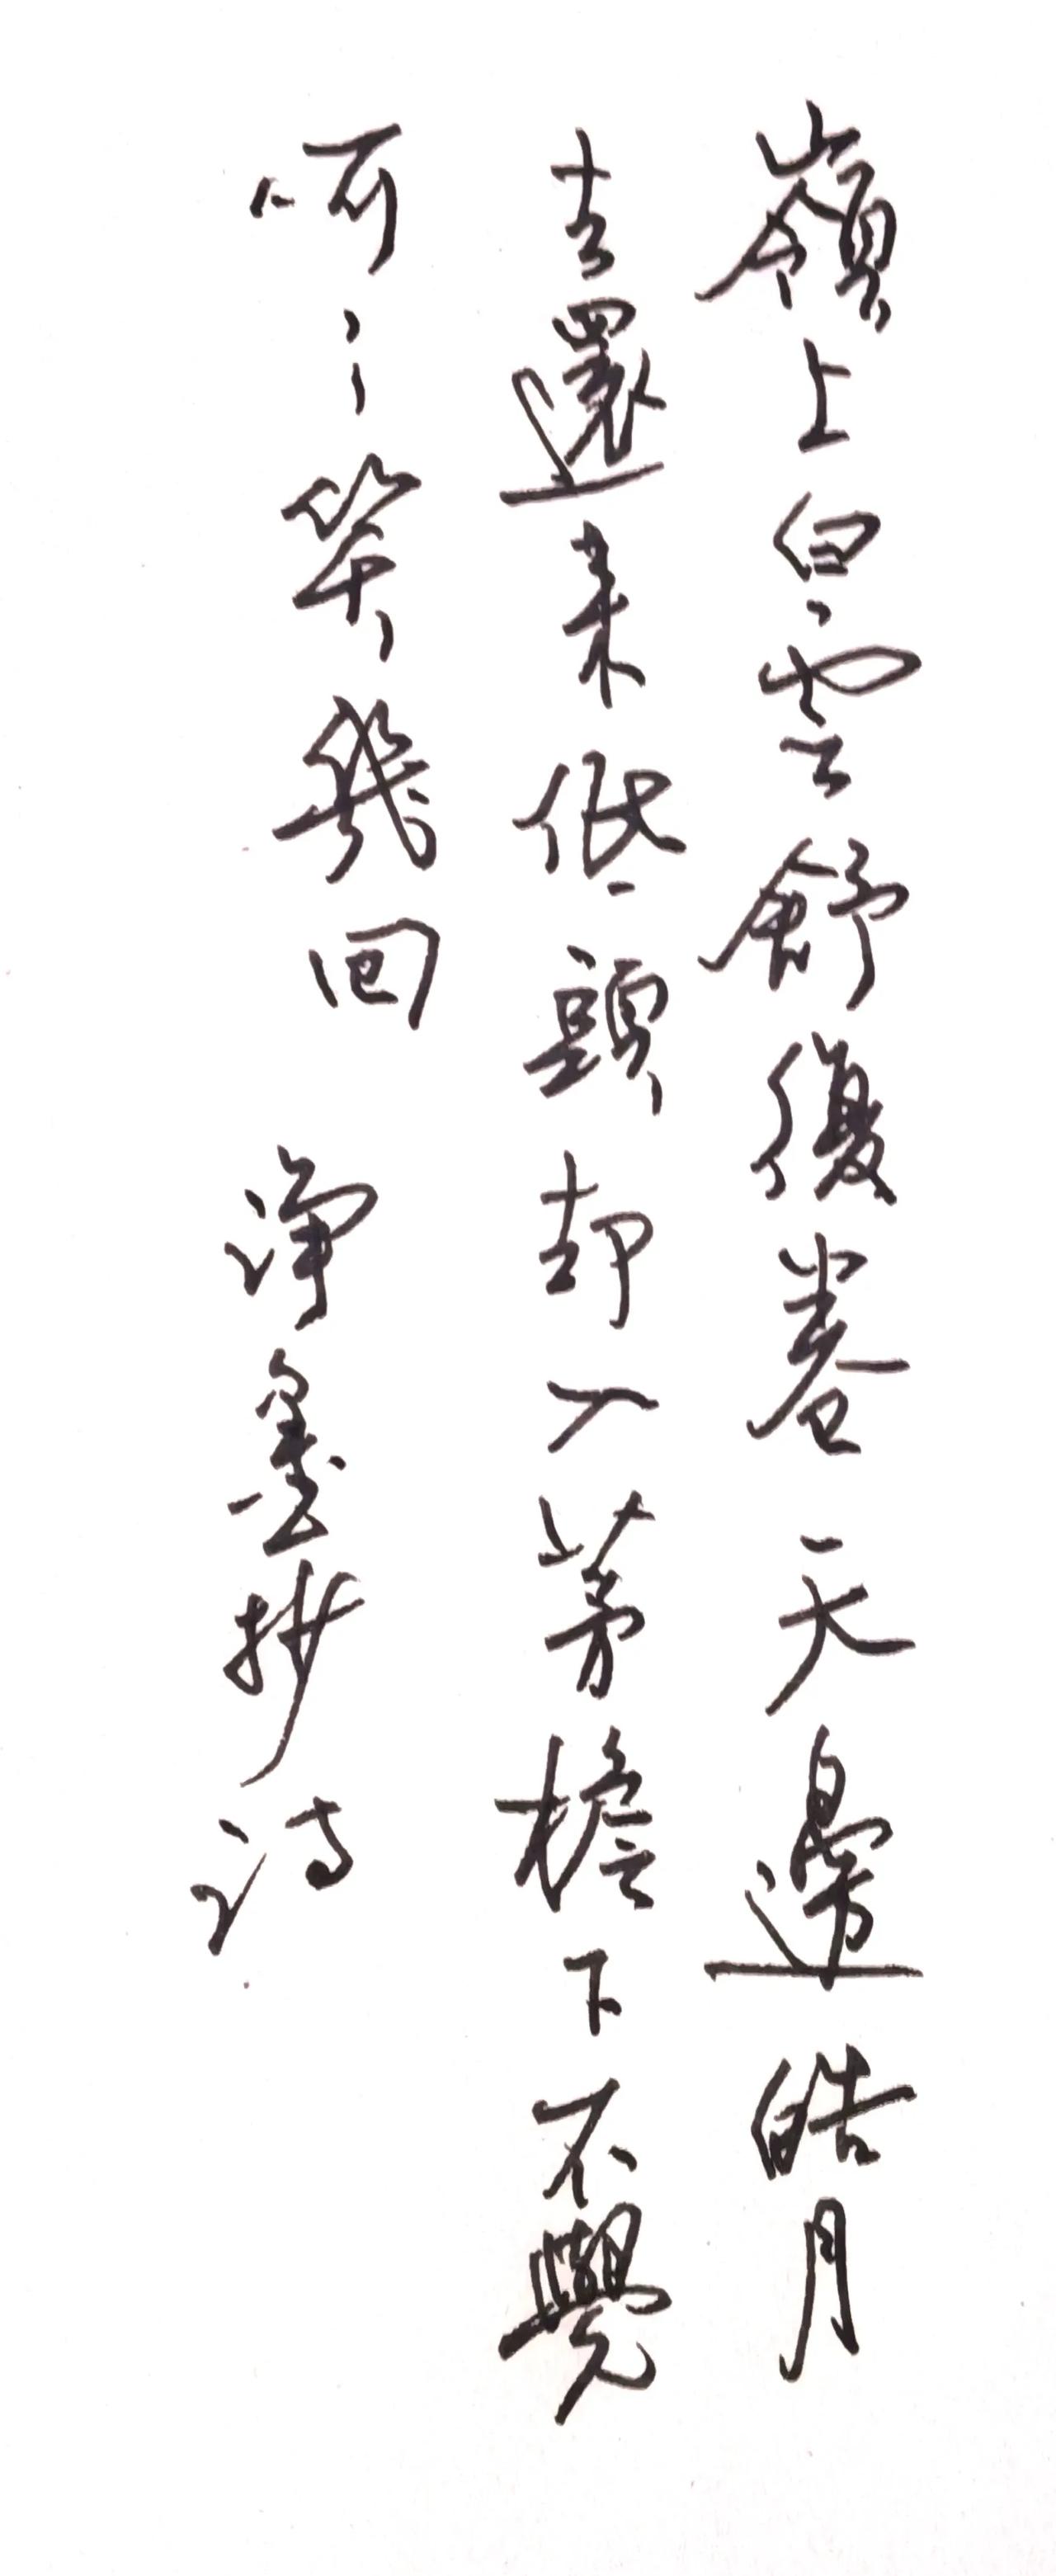 嶺上白雲舒復卷天邊皓月
去還來低頭却入茅檐下不覺
呵呵笑幾回 淨墨抄詩